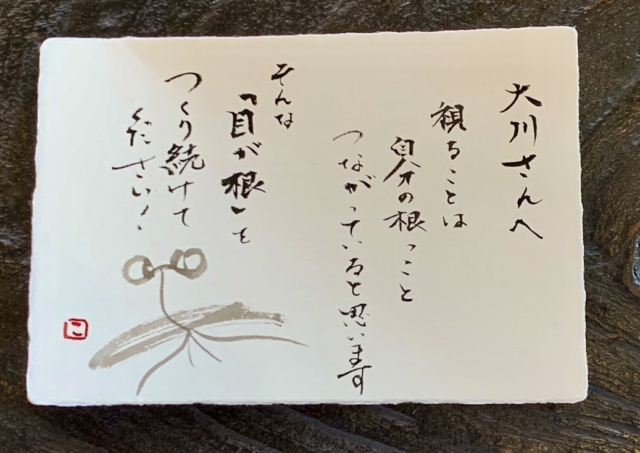 大川さんへ
視ることは
自分の根っこと
つながっていると思います
そんな
「目が根」を
つくり続けて
ください!
こ